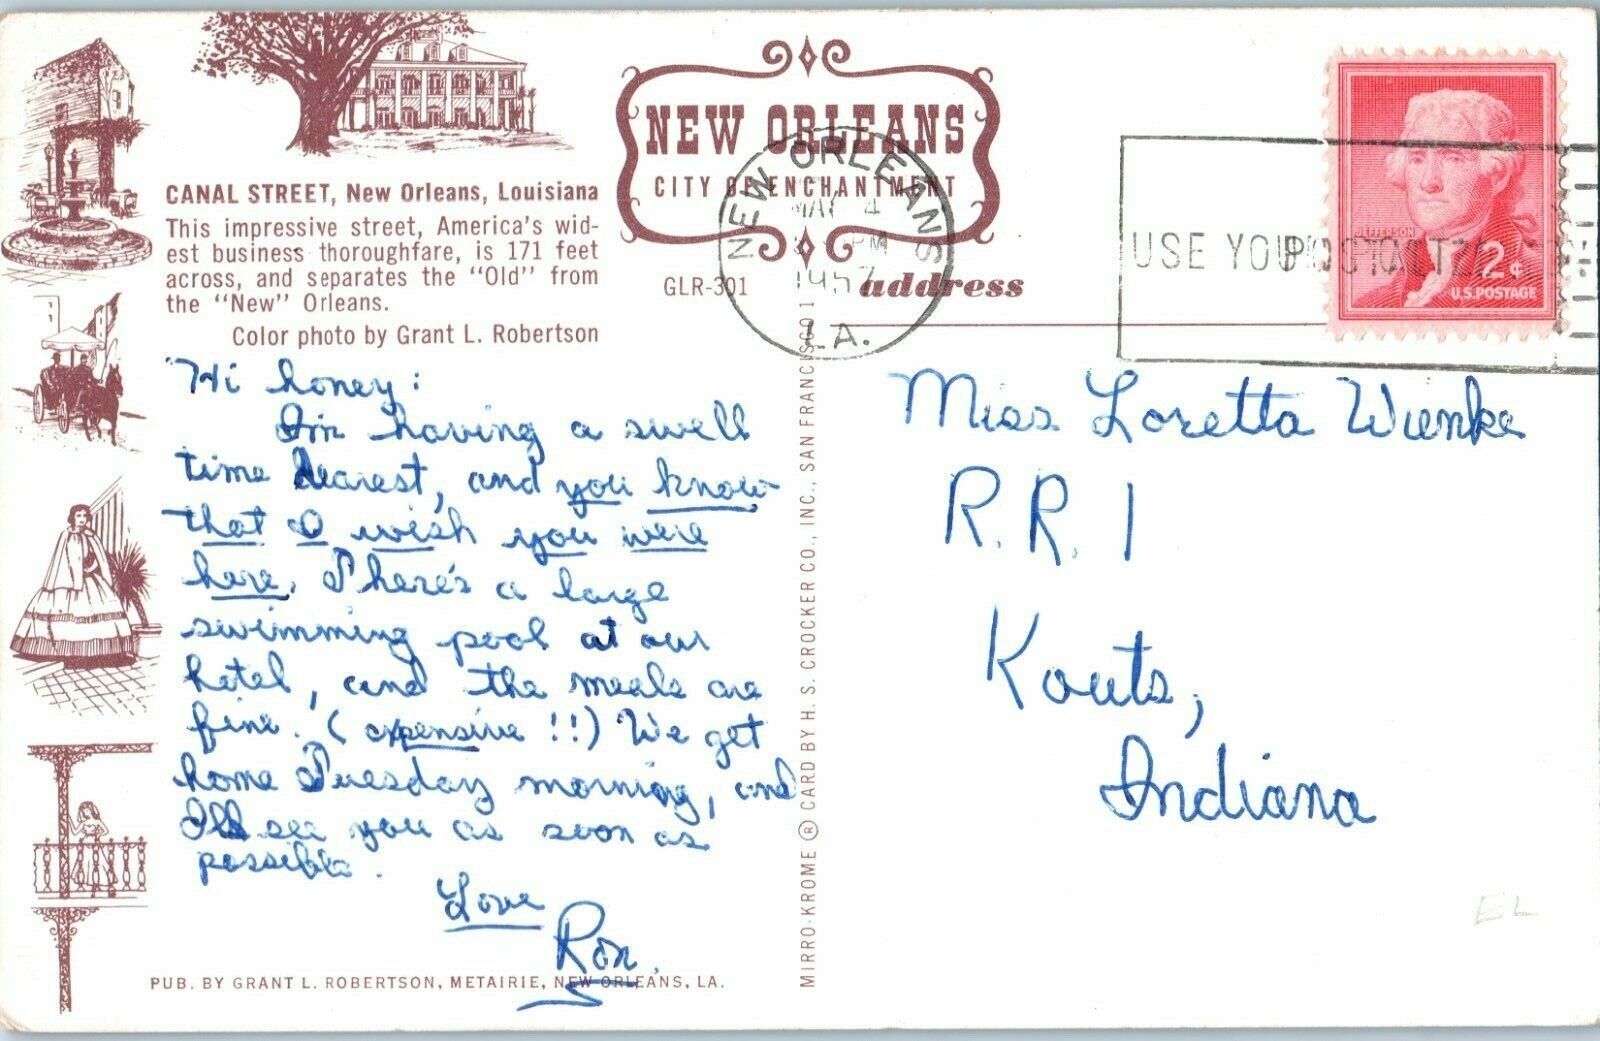 CANAL STREET, New Orleans, Louisiana
This impressive street, America's wid-
est business thoroughfare, is 171 feet
across, and separates the "Old" from
the "New" Orleans.
Color photo by Grant L. Robertson
NEW ORLEANS
CITY OF ENCHANTMENT
GLR-301
address
NEW ORLEANS
4
PM
1957
LA.
USE YOUR
JEFFERSON
2¢
U.S. POSTAGE
Hi honey:
I'm having a swell
time dearest, and you know
that I wish you were
here. There's a large
swimming pool at our
hotel, and the meals are
fine. (expensive !!) We get
home Tuesday morning, and
I'll see you as soon as
possible.
Love
Ron.
Miss Loretta Wienke
R.R. 1
Kouts,
Indiana
EL
MIRRO-KROME ® CARD BY H. S. CROCKER CO., INC., SAN FRANCISCO 1
PUB. BY GRANT L. ROBERTSON, METAIRIE, NEW ORLEANS, LA.